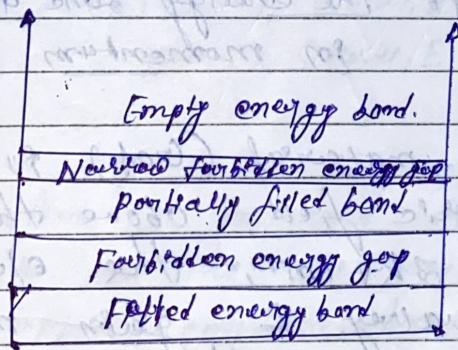 Empty energy band.
Narrow forbidden energy gap
Partially filled band
Forbidden energy gap
Filled energy band